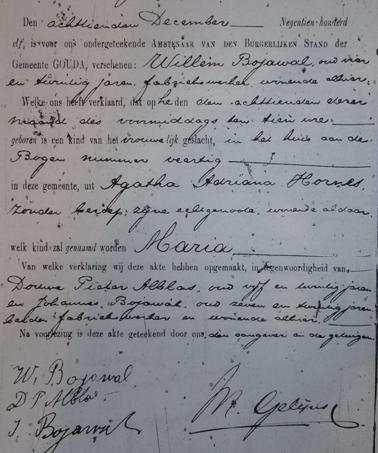 Den achttienden December Negentien-honderd
elf, is voor ons ondergeteekend AMBTENAAR VAN DEN BURGERLIJKEN STAND der
Gemeente GOUDA, verschenen: Willem Bojawal, oud vier
en twintig jaren, fabriekswerker, wonende alhier;
Welke ons heeft verklaard, dat op den achttienden dezer
maand des voormiddags ten tien ure
geboren is een kind van het vrouwelijk geslacht, in het huis aan de
Bogen nummer veertig
in deze gemeente, uit Agatha Adriana Hornes,
zonder beroep, zijne echtgenoote, wonende aldaar
welk kind zal genaamd worden Maria
Van welke verklaring wij deze akte hebben opgemaakt, in tegenwoordigheid van
Douwe Pieter Alblas, oud vijf en twintig jaren
en Johannes Bojawal, oud zeven en twintig jaren
beiden fabriekswerker en wonende alhier
Na voorlezing is deze akte geteekend door ons, den aangever en de getuigen
W. Bojawal
D P Alblas
J. Bojawal